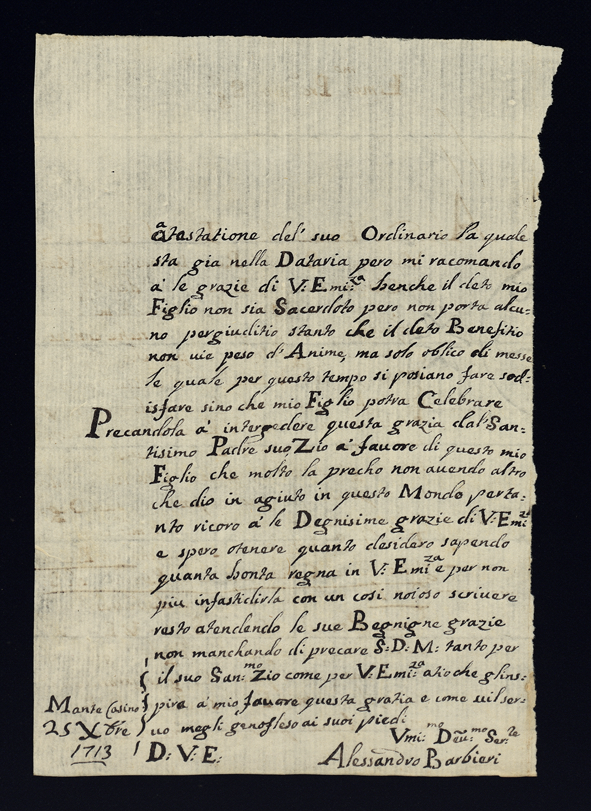 atestatione del' suo Ordinario la quale
sta gia nella Dataria pero mi racomando
a' le grazie di V: Emi:za benche il deto mio
Figlio non sia Sacerdoto pero non porta alcu-
no pergiuditio stanto che il deto Benefitio
non uie peso d' Anime, ma solo oblico di messe
le quale per questo tempo si posiano fare sod:
isfare sino che mio Figlio potra Celebrare
Precandola a' intercedere questa grazia dal' San:
tisimo Padre suo Zio a' fauore di questo mio
Figlio che molto la precho non auendo altro
che dio in agiuto in questo Mondo perta:
nto ricoro a' le Degnisime grazie di V: Emi:za
e spero otenere quanto desidero sapendo
quanta bonta regna in V: Emi:za e per non
piu infastidirla con un cosi noioso scriuere
resto atendendo le sue Begnigne grazie
non manchando di precare S: D: M: tanto per
il suo San:mo Zio come per V: Emi:za atio che gl'ins:
pira a' mio fauore questa gratia e come suilser:
uo megli genofleso ai suoi piedi
Vmi:mo Deu:mo Ser:te
D: V: E: Alessandro Barbieri
Monte Casino
25 Xbre
1713